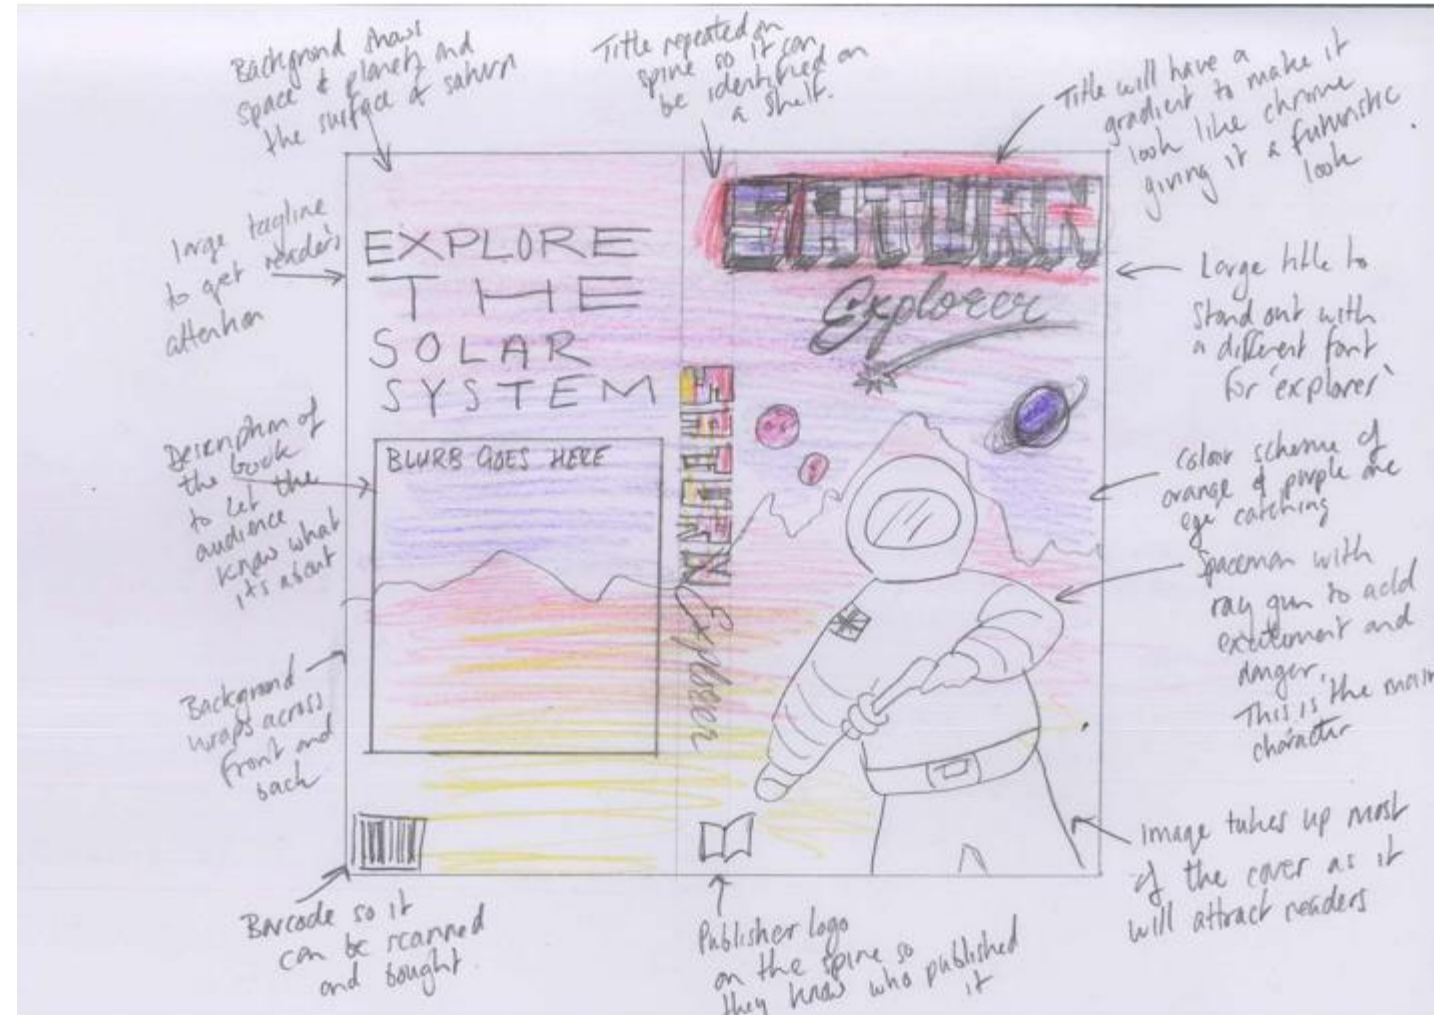 Background shows
space & planets and
the surface of saturn
Title repeated on
spine so it can
be identified on
a shelf.
Title will have a
gradient to make it
look like chrome
giving it a futuristic
look
large tagline
to get readers
attention
EXPLORE
THE
SOLAR
SYSTEM
SATURN
Explorer
Large title to
stand out with
a different font
for 'explorer'
Description of
the book
to let the
audience
know what
it's about
BLURB GOES HERE
SATURN Explorer
Colour scheme of
orange & purple are
eye catching
Spaceman with
ray gun to add
excitement and
danger.
This is the main
character
Background
wraps across
front and
back
Image takes up most
of the cover as it
will attract readers
Barcode so it
can be scanned
and bought.
Publisher logo
on the spine so
they know who published
it